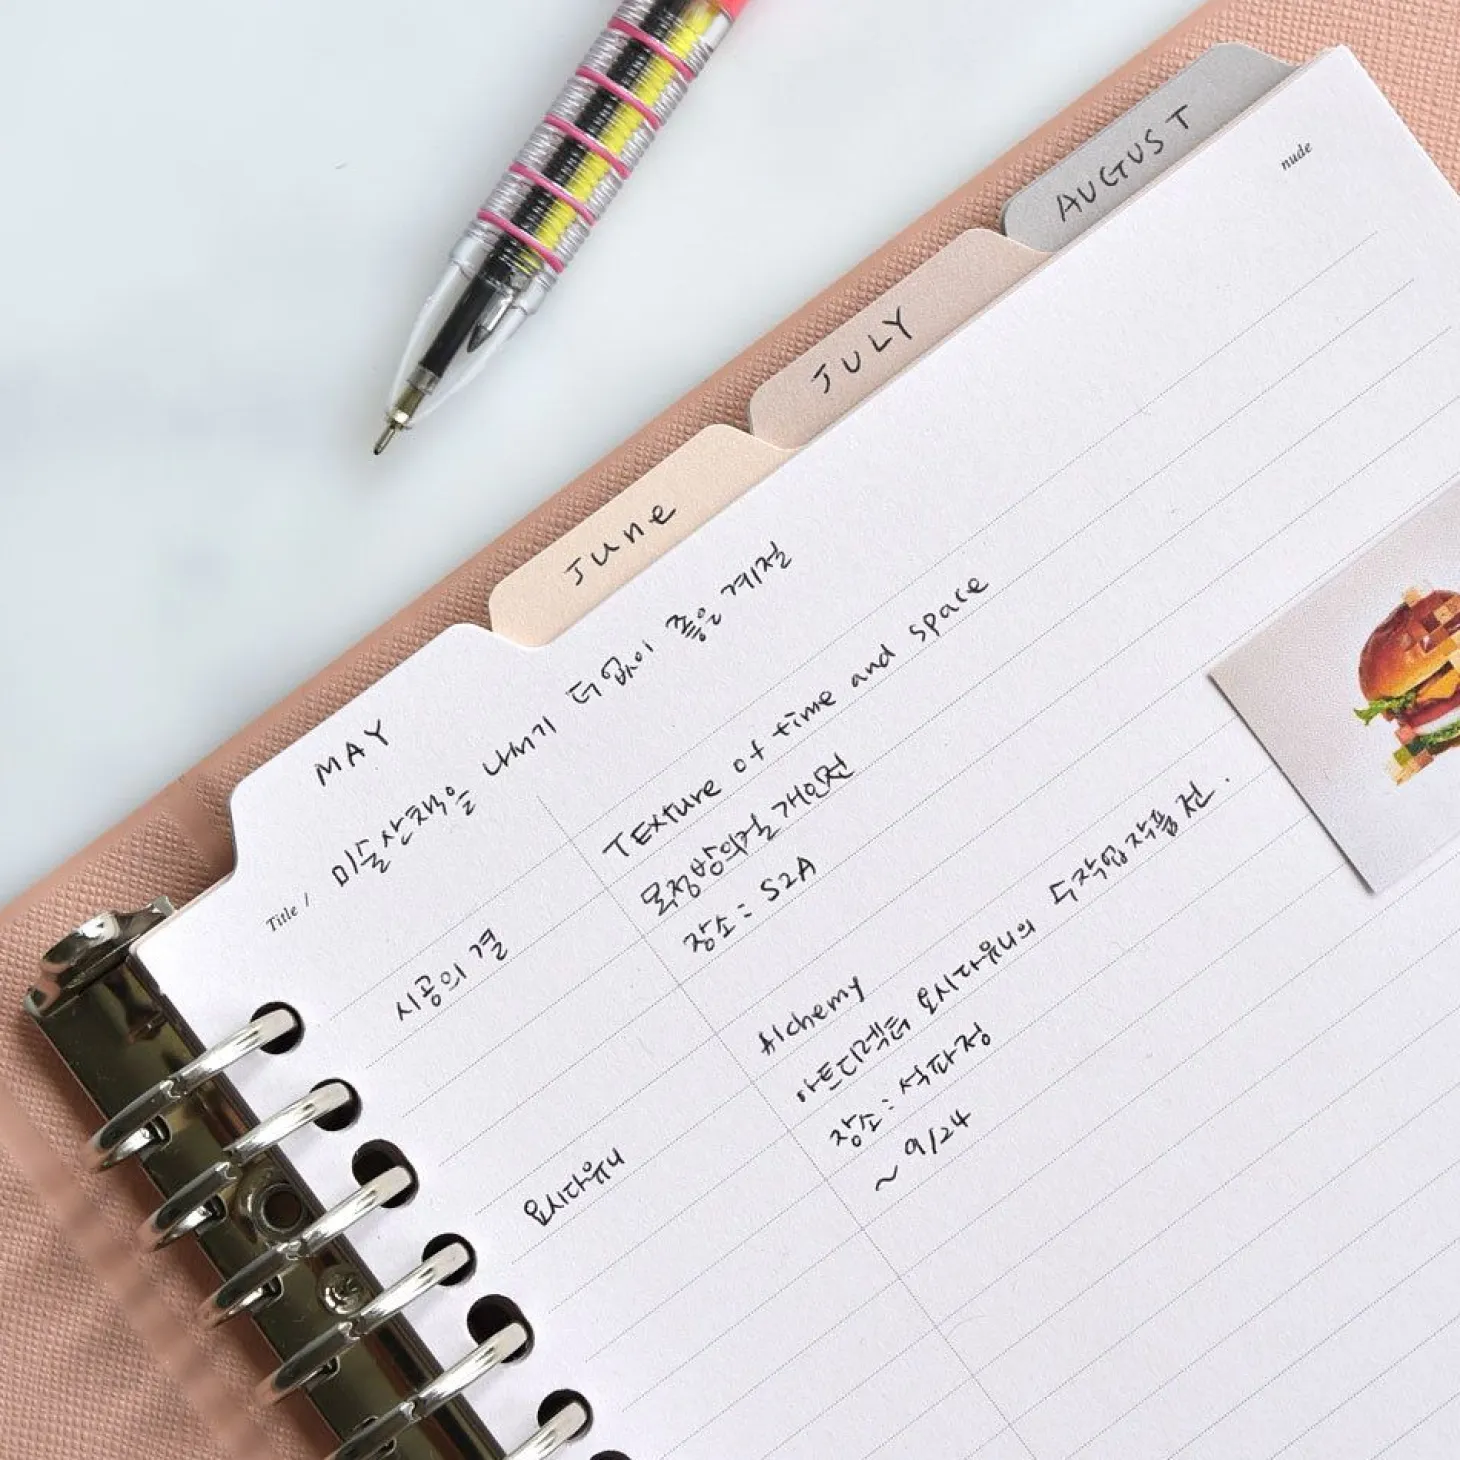 AUGUST
nude
JULY
June
MAY
Title / 미술산책을 나서기 더없이 좋은 계절
시공의 결
TExture of time and space
목정방의걸 개인전
장소: S2A
요시다유니
Alchemy
아트디렉터 요시다유니의 수작업작품전.
장소: 석파정
~ 9/24